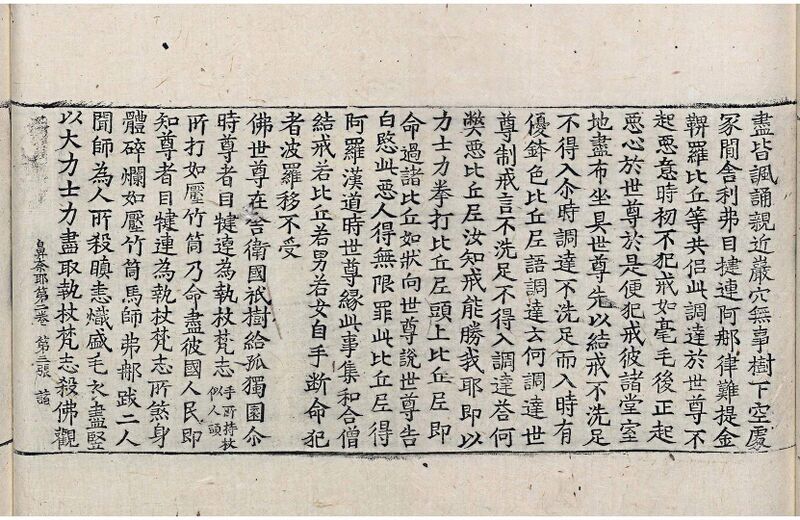 盡皆諷誦親近巖穴無事樹下空處
冢間舍利弗目揵連阿那律難提金
鞞羅比丘等共侶此調達於世尊不
起惡意時初不犯戒如毫毛後正起
惡心於世尊於是便犯戒彼諸堂室
地盡布坐具世尊先以結戒不洗足
不得入尒時調達不洗足而入時有
優鉢色比丘尼語調達云何調達世
尊制戒言不洗足不得入調達荅何
弊惡比丘尼汝知戒能勝我耶即以
力士力拳打比丘尼頭上比丘尼即
命過諸比丘如狀向世尊說世尊告
白愍此惡人得無限罪此比丘尼得
阿羅漢道時世尊緣此事集和合僧
結戒若比丘若男若女自手斷命犯
者波羅移不受
佛世尊在舍衛國祇樹給孤獨園尒
時尊者目揵連為執杖梵志手所持杖似人頭
所打如壓竹筒乃命盡彼國人民即
知尊者目犍連為執杖梵志所煞身
體碎爛如壓竹筒馬師弗那跋二人
聞師為人所殺瞋恚熾盛毛衣盡竪
鼻奈耶第二卷 第三張 諸
以大力士力盡取執杖梵志殺佛觀